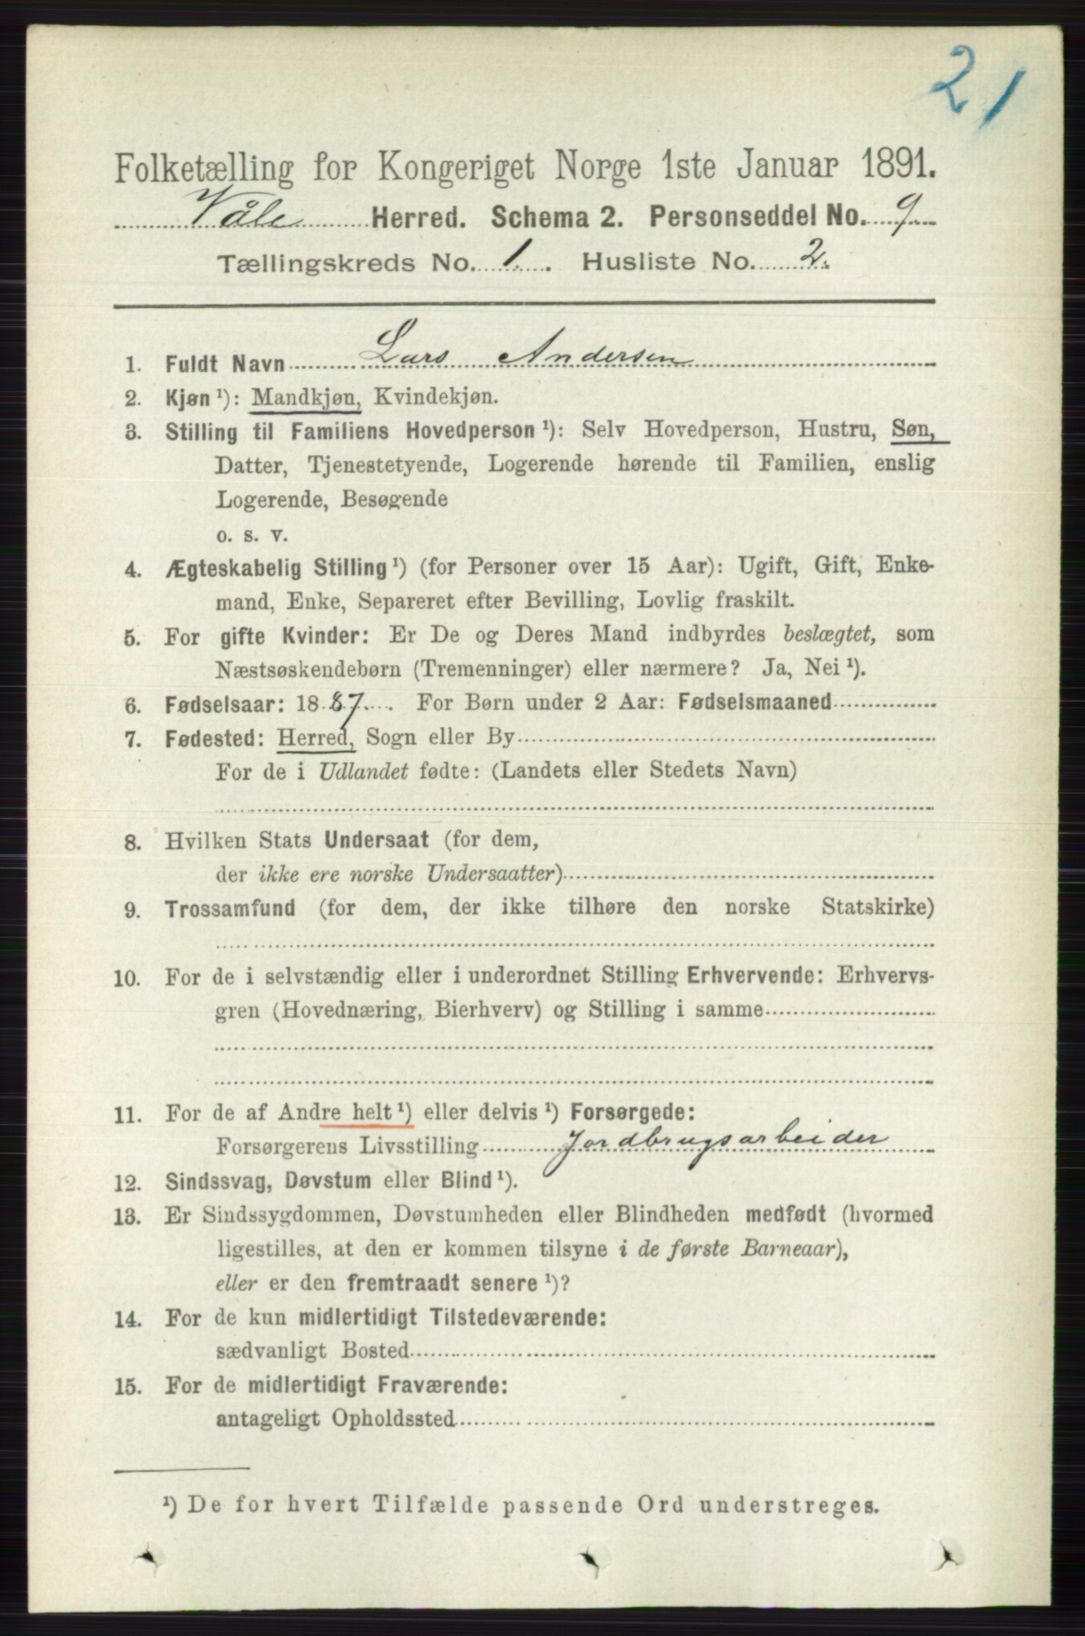 21
Folketælling for Kongeriget Norge 1ste Januar 1891.
Våle Herred. Schema 2. Personseddel No. 9
Tællingskreds No. 1. Husliste No. 2.
1. Fuldt Navn Lars Andersen
2. Kjøn ¹): Mandkjøn, Kvindekjøn.
3. Stilling til Familiens Hovedperson ¹): Selv Hovedperson, Hustru, Søn,
Datter, Tjenestetyende, Logerende hørende til Familien, enslig
Logerende, Besøgende
o. s. v.
4. Ægteskabelig Stilling ¹) (for Personer over 15 Aar): Ugift, Gift, Enke-
mand, Enke, Separeret efter Bevilling, Lovlig fraskilt.
5. For gifte Kvinder: Er De og Deres Mand indbyrdes beslægtet, som
Næstsøskendebørn (Tremenninger) eller nærmere? Ja, Nei ¹).
6. Fødselsaar: 1887. For Børn under 2 Aar: Fødselsmaaned
7. Fødested: Herred, Sogn eller By
For de i Udlandet fødte: (Landets eller Stedets Navn)
8. Hvilken Stats Undersaat (for dem,
der ikke ere norske Undersaatter)
9. Trossamfund (for dem, der ikke tilhøre den norske Statskirke)
10. For de i selvstændig eller i underordnet Stilling Erhvervende: Erhvervs-
gren (Hovednæring, Bierhverv) og Stilling i samme
11. For de af Andre helt ¹) eller delvis ¹) Forsørgede:
Forsørgerens Livsstilling Jordbrugsarbeider
12. Sindssvag, Døvstum eller Blind ¹).
13. Er Sindssygdommen, Døvstumheden eller Blindheden medfødt (hvormed
ligestilles, at den er kommen tilsyne i de første Barneaar),
eller er den fremtraadt senere ¹)?
14. For de kun midlertidigt Tilstedeværende:
sædvanligt Bosted
15. For de midlertidigt Fraværende:
antageligt Opholdssted
¹) De for hvert Tilfælde passende Ord understreges.